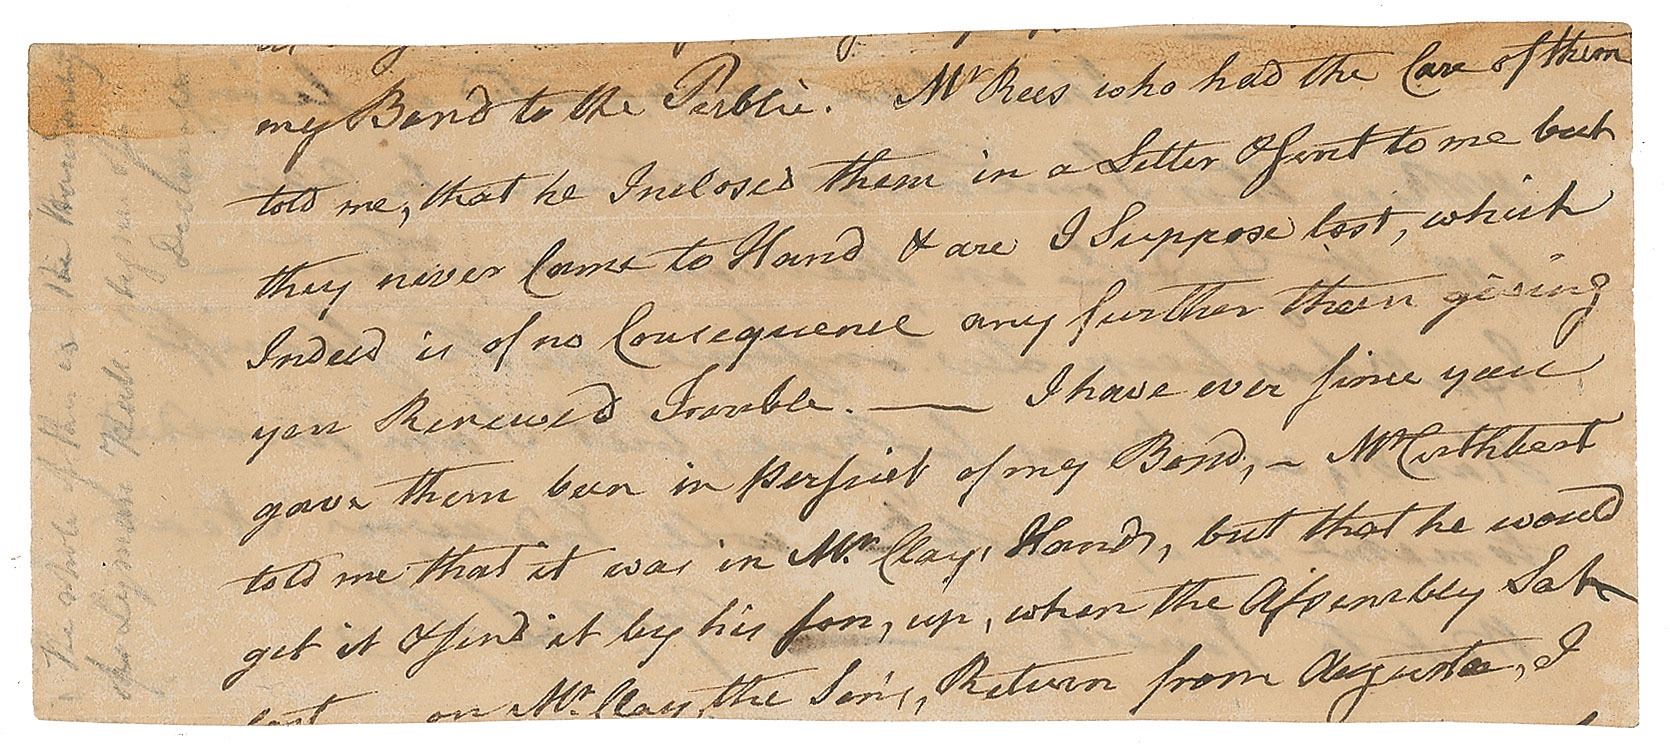 my Bond to the Publie. Mr Rees who had the Care of them
told me, that he Inclosed them in a Letter & sent to me but
they never Came to Hand & are I Suppose lost, which
Indeed is of no Consequence any further then giving
you Renewed Trouble. — I have ever since you
gave them been in persuit of my Bond, – Mr Cuthbert
told me that it was in Mr. Clays Hands, but that he would
get it & send it by his son, up, when the Assembly Sat
last on Mr. Clay, the Son's, Return from Augusta, I
The whole of this is the handwriting
of Lyman Hall signer of
Declaration